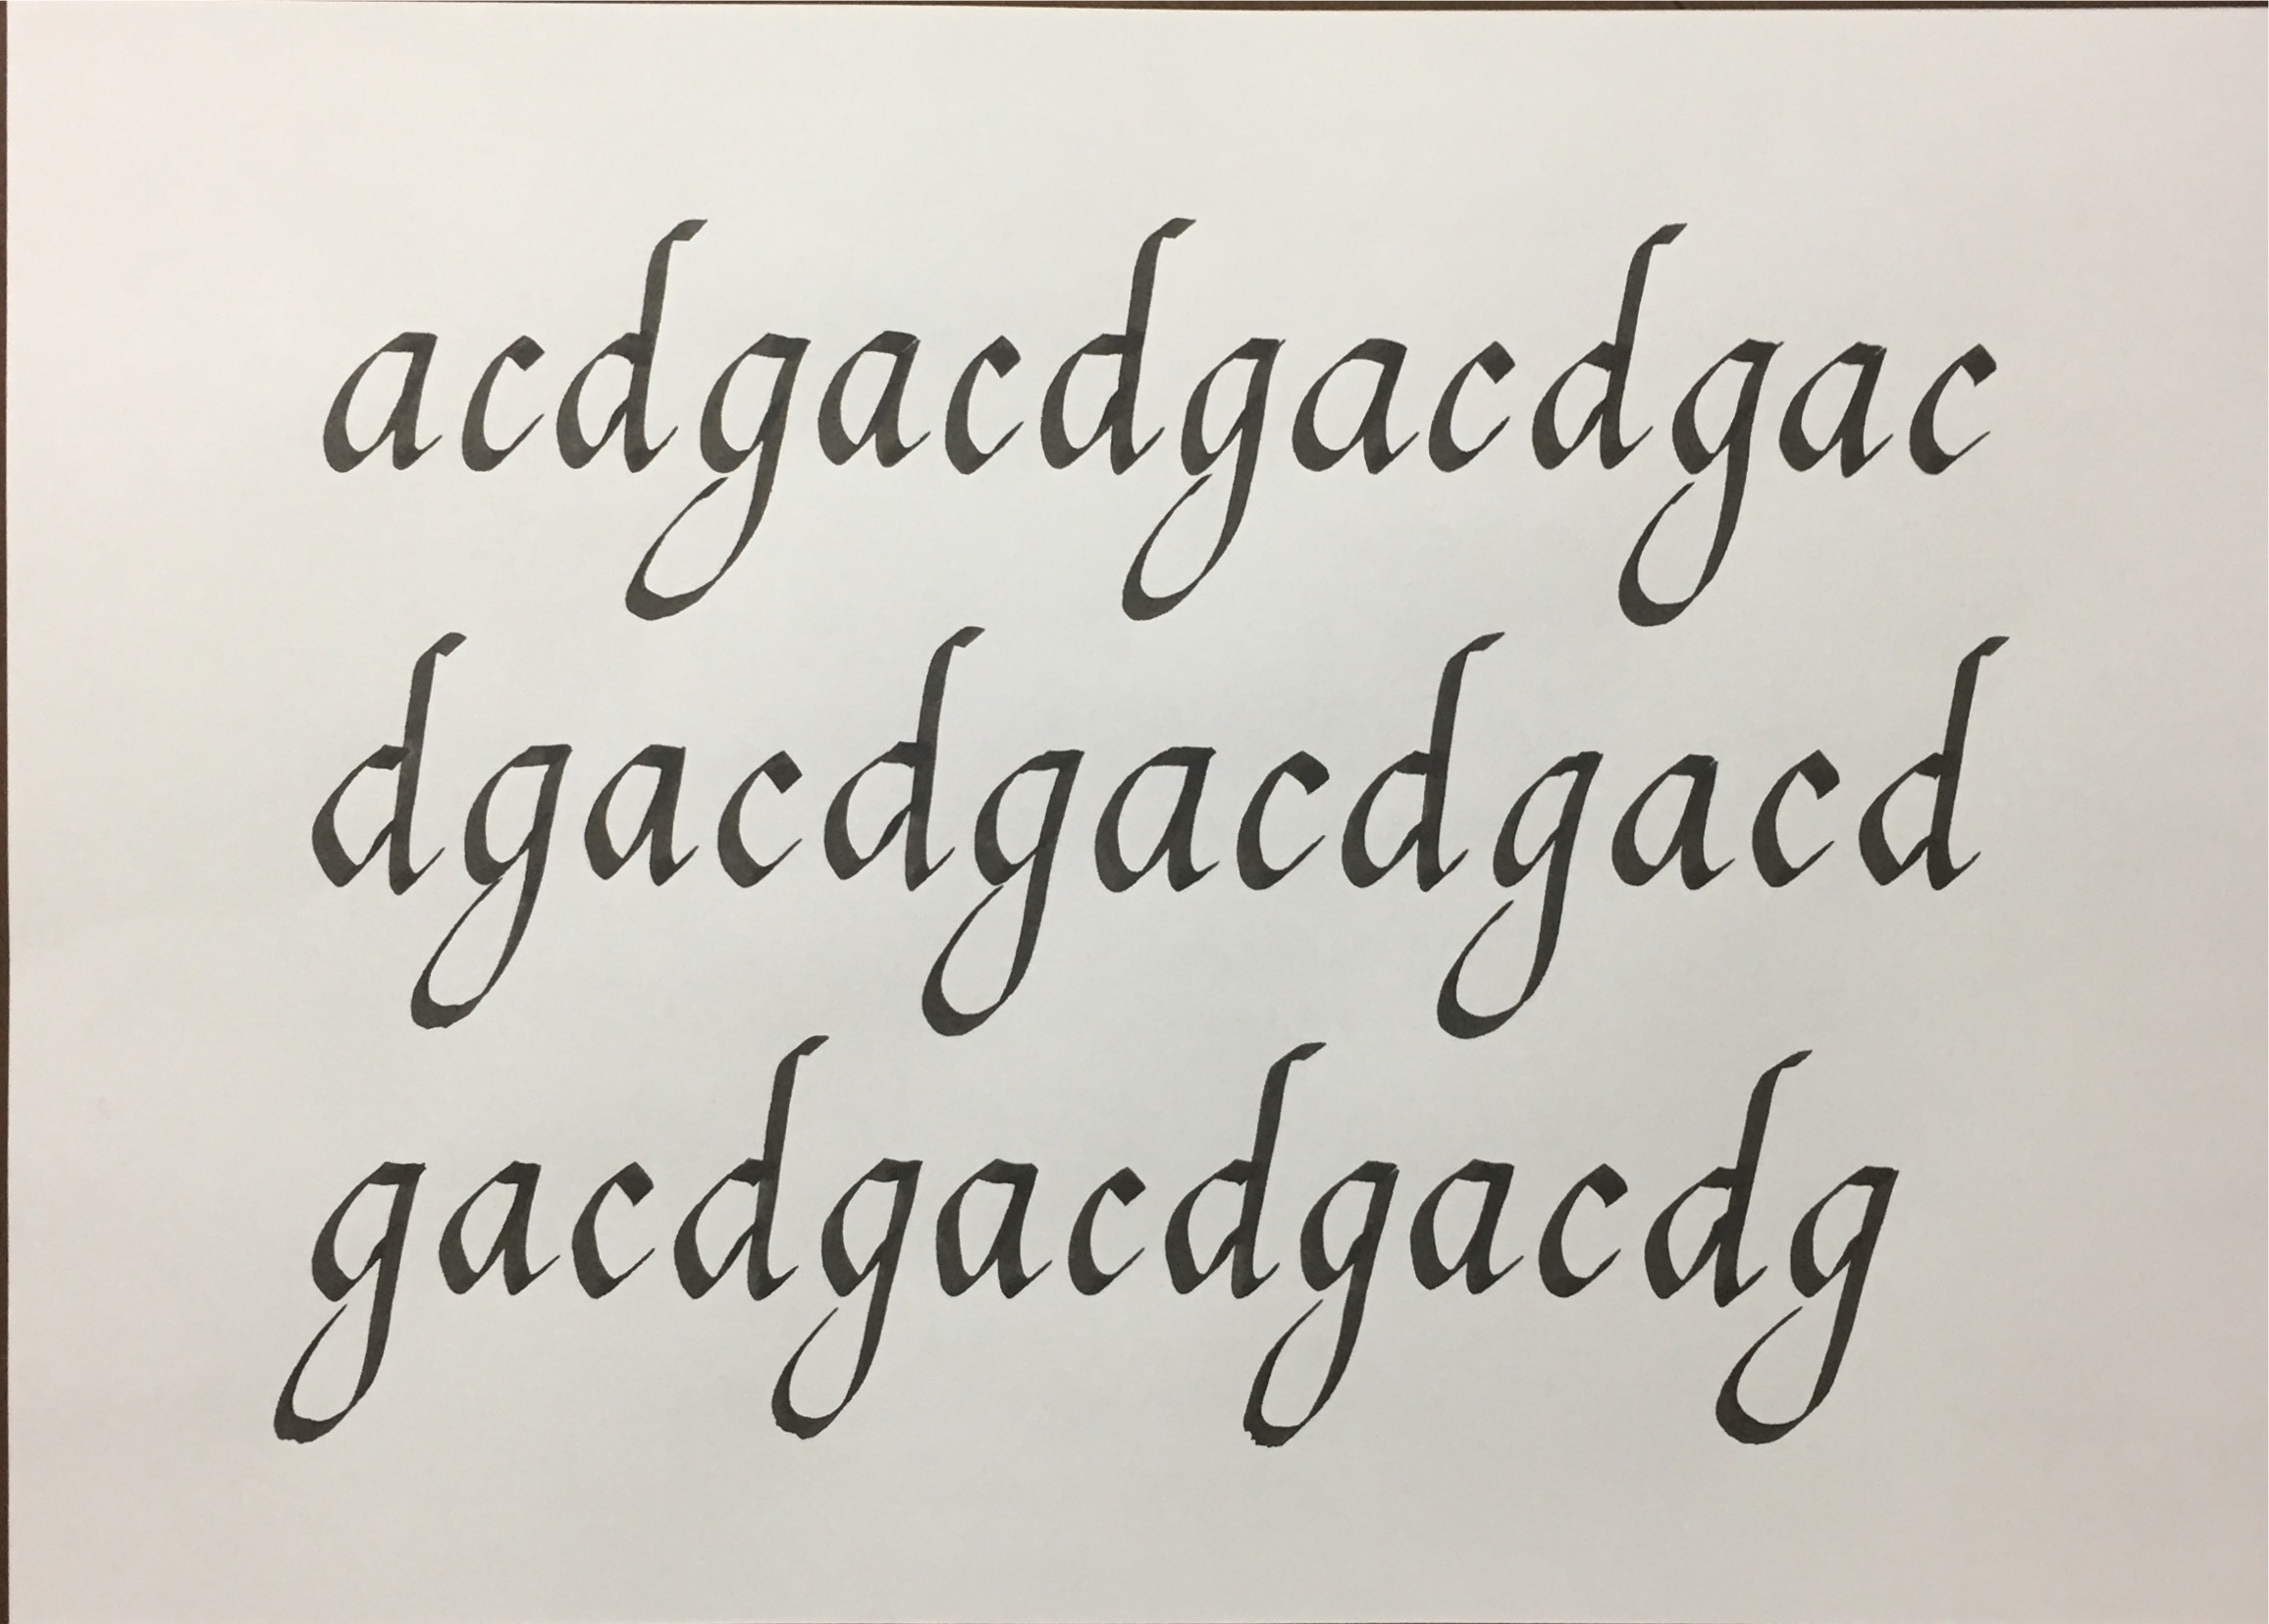 acdgacdgacdgac
dgacdgacdgacd
gacdgacdgacdg